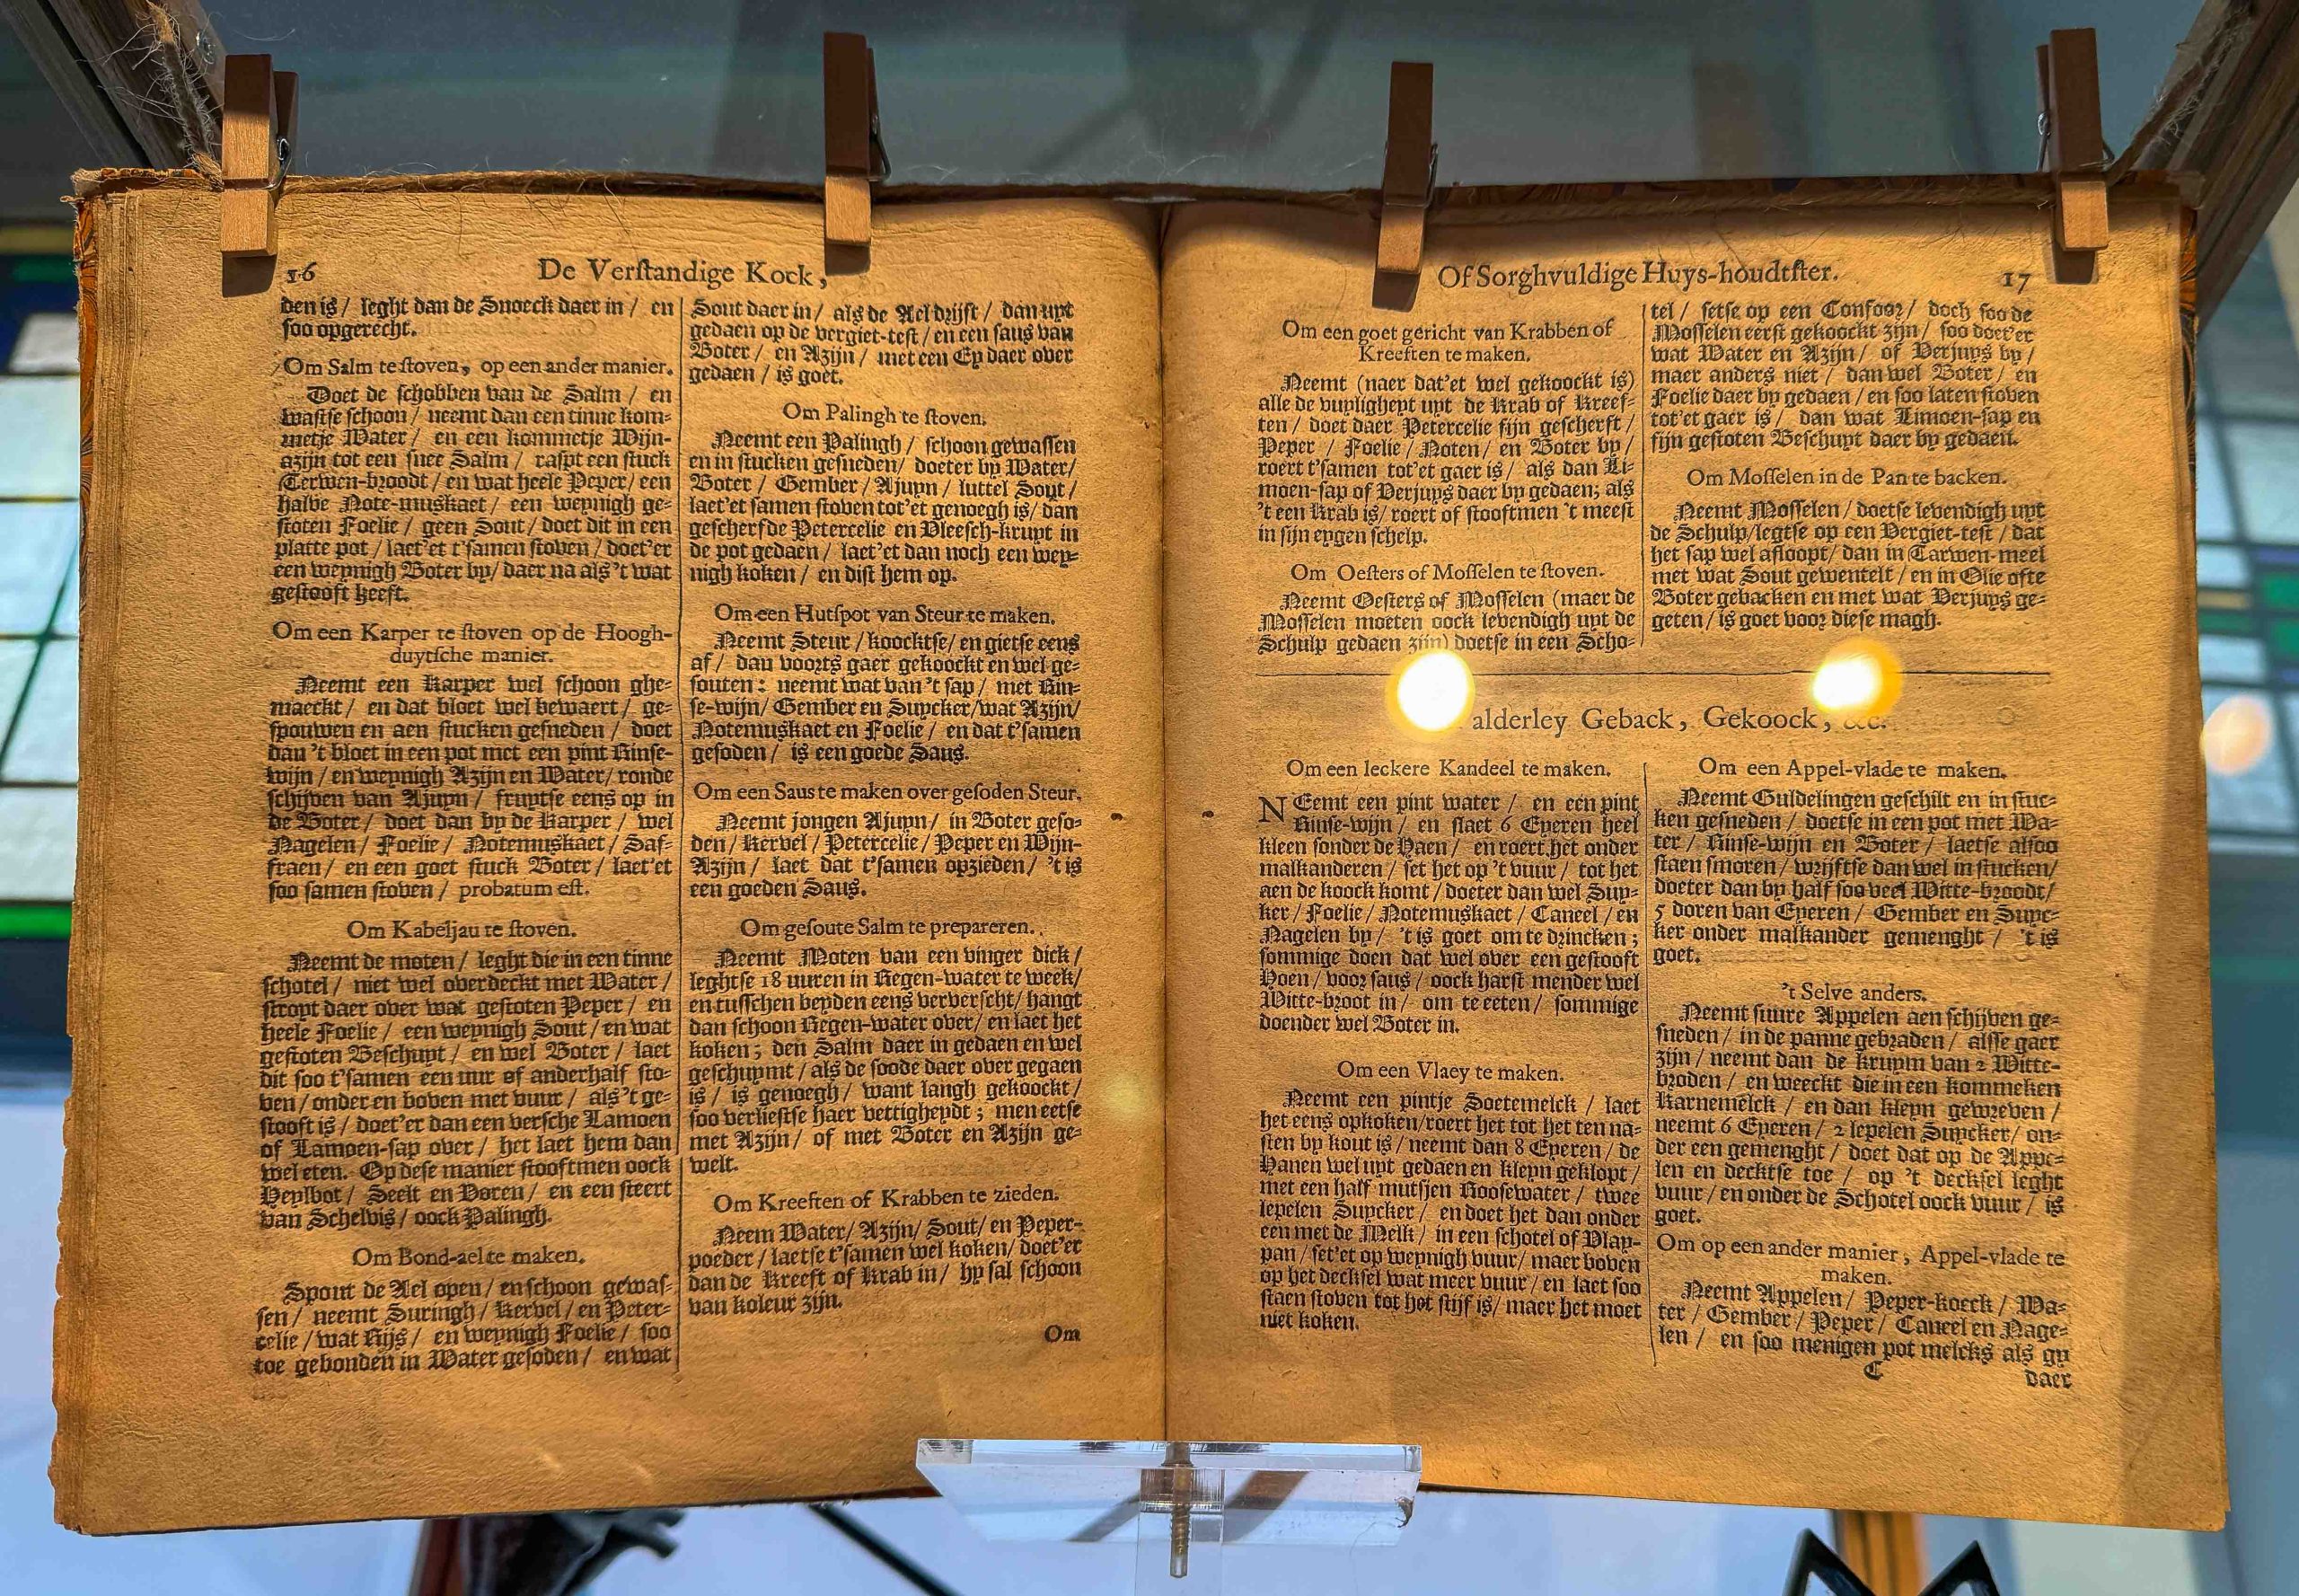 16
De Verſtandige Kock,
den is / leght dan de Snoeck daer in / en
ſoo opgerecht.
Om Salm te ſtoven, op een ander manier.
Doet de ſchobben van de Salm / en
waſtſe ſchoon / neemt dan een tinne kom-
metje Water / en een kommetje Wijn-
azijn tot een ſnee Salm / raſpt een ſtuck
Terwen-broodt / en wat heele Peper / een
halve Note-muskaet / een weynigh ge-
ſtoten Foelie / geen Sout / doet dit in een
platte pot / laet'et t'ſamen ſtoven / doet'er
een weynigh Boter by / daer na als 't wat
geſtooft heeft.
Om een Karper te ſtoven op de Hoogh-
duytſche manier.
Neemt een Karper wel ſchoon ghe-
maeckt / en dat bloet wel bewaert / ge-
ſpouwen en aen ſtucken geſneden / doet
dan 't bloet in een pot met een pint Rinſe-
wijn / en weynigh Azijn en Water / ronde
ſchijven van Ajuyn / fruytſe eens op in
de Boter / doet dan by de Karper / wel
Nagelen / Foelie / Notemuskaet / Saf-
fraen / en een goet ſtuck Boter / laet'et
ſoo ſamen ſtoven / probatum eſt.
Om Kabeljau te ſtoven.
Neemt de moten / leght die in een tinne
ſchotel / niet wel overdeckt met Water /
ſtroyt daer over wat geſtoten Peper / en
heele Foelie / een weynigh Sout / en wat
geſtoten Beſchuyt / en wel Boter / laet
dit ſoo t'ſamen een uur of anderhalf ſto-
ven / onder en boven met vuur / als 't ge-
ſtooft is / doet'er dan een verſche Lamoen
of Lamoen-ſap over / het laet hem dan
wel eten. Op deſe manier ſtooftmen oock
Heylbot / Seelt en Doren / en een ſteert
van Schelvis / oock Palingh.
Om Bond-ael te maken.
Spout de Ael open / en ſchoon gewaſ-
ſen / neemt Suringh / Kervel / en Peter-
celie / wat Rijs / en weynigh Foelie / ſoo
toe gebonden in Water geſoden / en wat
Sout daer in / als de Ael drijft / dan uyt
gedaen op de vergiet-teſt / en een ſaus van
Boter / en Azijn / met een Ey daer over
gedaen / is goet.
Om Palingh te ſtoven.
Neemt een Palingh / ſchoon gewaſſen
en in ſtucken geſneden / doeter by Water /
Boter / Gember / Ajuyn / luttel Sout /
laet'et ſamen ſtoven tot'et genoegh is / dan
geſcherfde Petercelie en Vleeſch-kruyt in
de pot gedaen / laet'et dan noch een wey-
nigh koken / en diſt hem op.
Om een Hutſpot van Steur te maken.
Neemt Steur / koocktſe / en gietſe eens
af / dan voorts gaer gekoockt en wel ge-
ſouten : neemt wat van 't ſap / met Rin-
ſe-wijn / Gember en Suycker / wat Azijn /
Notemuskaet en Foelie / en dat t'ſamen
geſoden / is een goede Saus.
Om een Saus te maken over geſoden Steur.
Neemt jongen Ajuyn / in Boter geſo-
den / Kervel / Petercelie / Peper en Wijn-
Azijn / laet dat t'ſamen opzieden / 't is
een goeden Saus.
Om geſoute Salm te prepareren.
Neemt Moten van een vinger dick /
leghtſe 18 uuren in Regen-water te week /
en tuſſchen beyden eens ververſcht / hangt
dan ſchoon Regen-water over / en laet het
koken ; den Salm daer in gedaen en wel
geſchuymt / als de ſoode daer over gegaen
is / is genoegh / want langh gekoockt /
ſoo verlieſtſe haer vettigheydt ; men eetſe
met Azijn / of met Boter en Azijn ge-
welt.
Om Kreeften of Krabben te zieden.
Neem Water / Azijn / Sout / en Peper-
poeder / laetſe t'ſamen wel koken / doet'er
dan de Kreeft of Krab in / hy ſal ſchoon
van koleur zijn.
Om
Of Sorghvuldige Huys-houdtſter.
17
Om een goet gericht van Krabben of
Kreeften te maken.
Neemt (naer dat'et wel gekoockt is)
alle de vuyligheyt uyt de Krab of Kreef-
ten / doet daer Petercelie fijn geſcherft /
Peper / Foelie / Noten / en Boter by /
roert t'ſamen tot'et gaer is / als dan Li-
moen-ſap of Verjuys daer by gedaen; als
't een Krab is / roert of ſtooftmen 't meeſt
in ſijn eygen ſchelp.
Om Oeſters of Moſſelen te ſtoven.
Neemt Oeſters of Moſſelen (maer de
Moſſelen moeten oock levendigh uyt de
Schulp gedaen zijn) doetſe in een Scho-
tel / ſetſe op een Confoor / doch ſoo de
Moſſelen eerſt gekoockt zijn / ſoo doet'er
wat Water en Azijn / of Verjuys by /
maer anders niet / dan wel Boter / en
Foelie daer by gedaen / en ſoo laten ſtoven
tot'et gaer is / dan wat Limoen-ſap en
fijn geſtoten Beſchuyt daer by gedaen.
Om Moſſelen in de Pan te backen.
Neemt Moſſelen / doetſe levendigh uyt
de Schulp / legtſe op een Vergiet-teſt / dat
het ſap wel afloopt / dan in Tarwen-meel
met wat Sout gewentelt / en in Olie ofte
Boter gebacken en met wat Verjuys ge-
geten / is goet voor dieſe magh.
alderley Geback, Gekoock, &c.
Om een leckere Kandeel te maken.
NEemt een pint water / en een pint
Rinſe-wijn / en ſlaet 6 Eyeren heel
kleen ſonder de Haen / en roert het onder
malkanderen / ſet het op 't vuur / tot het
aen de koock komt / doeter dan wel Suy-
ker / Foelie / Notemuskaet / Caneel / en
Nagelen by / 't is goet om te drincken ;
ſommige doen dat wel over een geſtooft
Hoen / voor ſaus / oock harſt mender wel
Witte-broot in / om te eeten / ſommige
doender wel Boter in.
Om een Vlaey te maken.
Neemt een pintje Soetemelck / laet
het eens opkoken / roert het tot het ten na-
ſten by kout is / neemt dan 8 Eyeren / de
Hanen wel uyt gedaen en kleyn geklopt /
met een half mutſjen Rooſewater / twee
lepelen Suycker / en doet het dan onder
een met de Melk / in een ſchotel of Vlay-
pan / ſet'et op weynigh vuur / maer boven
op het deckſel wat meer vuur / en laet ſoo
ſtaen ſtoven tot hot ſtijf is / maer het moet
niet koken.
Om een Appel-vlade te maken.
Neemt Guldelingen geſchilt en in ſtuc-
ken geſneden / doetſe in een pot met Wa-
ter / Rinſe-wijn en Boter / laetſe alſoo
ſtaen ſmoren / wrijftſe dan wel in ſtucken /
doeter dan by half ſoo veel Witte-broodt /
5 doren van Eyeren / Gember en Suyc-
ker onder malkander gemenght / 't is
goet.
't Selve anders.
Neemt ſuure Appelen aen ſchijven ge-
ſneden / in de panne gebraden / alſſe gaer
zijn / neemt dan de kruym van 2 Witte-
broden / en weeckt die in een kommeken
Karnemelck / en dan kleyn gewreven /
neemt 6 Eyeren / 2 lepelen Suycker / on-
der een gemenght / doet dat op de Appe-
len en decktſe toe / op 't deckſel leght
vuur / en onder de Schotel oock vuur / is
goet.
Om op een ander manier, Appel-vlade te
maken.
Neemt Appelen / Peper-koeck / Wa-
ter / Gember / Peper / Caneel en Nage-
len / en ſoo menigen pot melcks als gy
C
daer